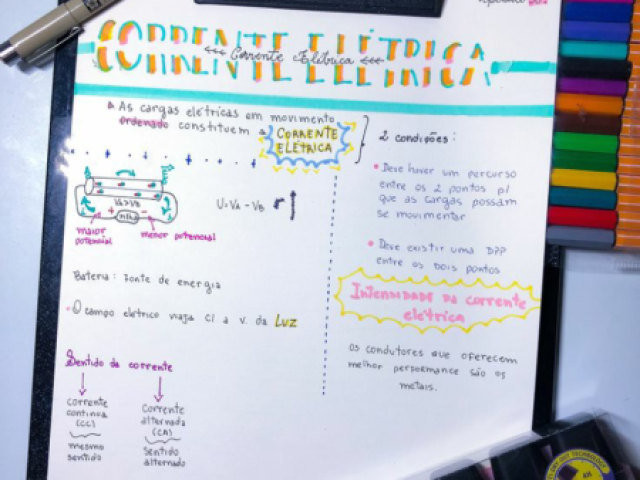 CORRENTE ELÉTRICA
Corrente Elétrica
As cargas elétricas em movimento
ordenado constituem a CORRENTE
ELÉTRICA
2 condições:
• Deve haver um percurso
entre os 2 pontos p/
que as cargas possam
se movimentar
• Deve existir uma DPP
entre os dois pontos
VA>VB
+ pilha -
maior
potencial
menor potencial
U=VA - VB
Bateria: Fonte de energia
• O campo elétrico viaja c/ a v. da Luz
Intensidade da corrente
elétrica
Os condutores que oferecem
melhor performance são os
metais.
Sentido da corrente
corrente
contínua
(CC)
mesmo
sentido
Corrente
alternada
(CA)
sentido
alternado